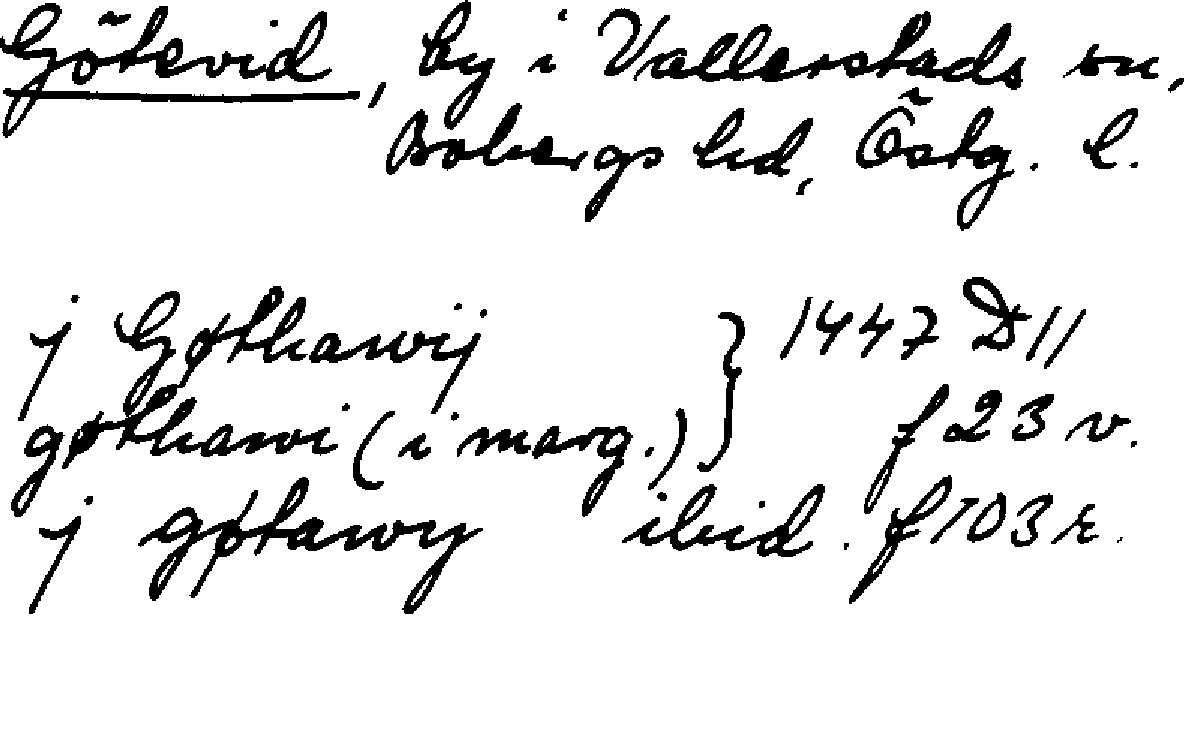 Götevid, by i Vallerstads sn,
Bobergs hd, Östg. l.
j Gøthawij } 1447 D 11
gøthawi (i marg.) f 23 v.
j gøtawy ibid. f 103 r.